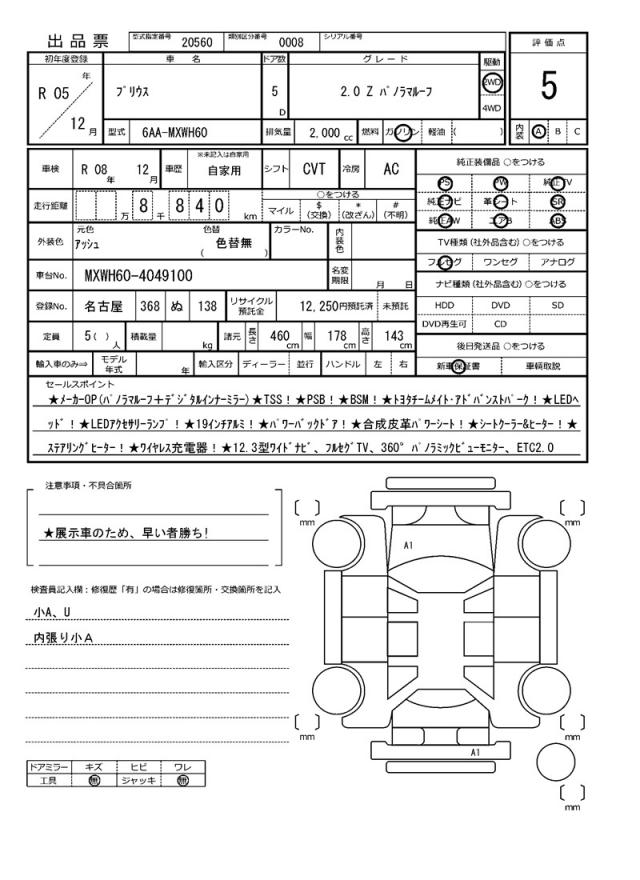 出品票
型式指定番号 20560 類別区分番号 0008 シリアル番号
評価点
5
内装 A B C
初年度登録 車名 ドア数 グレード 駆動
R 05 年 12 月
プリウス
5 D
2.0 Z パノラマルーフ
2WD
4WD
型式 6AA-MXWH60 排気量 2,000 cc 燃料 ガソリン 軽油 ( )
車検 R 08 年 12 月 車歴 ※未記入は自家用 自家用 シフト CVT 冷房 AC
走行距離 万 8 千 8 4 0 km
○をつける
マイル $ (交換) * (改ざん) # (不明)
外装色 元色 アッシュ 色替 ( 色替無 ) カラーNo. 内装色
車台No. MXWH60-4049100 名変期限 月 日
登録No. 名古屋 368 ぬ 138 リサイクル預託金 12,250円預託済 未預託
定員 5( ) 人 積載量 kg 諸元 長さ 460 cm 幅 178 cm 高さ 143 cm
輸入車のみ⇒ モデル年式 年 輸入区分 ディーラー 並行 ハンドル 左 右
純正装備品 ○をつける
PS PW 純正TV
純正ナビ 革シート SR
純正AW エアB ABS
TV種類 (社外品含む) ○をつける
フルセグ ワンセグ アナログ
ナビ種類 (社外品含む) ○をつける
HDD DVD SD
DVD再生可 CD
後日発送品 ○をつける
新車保証書 車輌取説
セールスポイント
★メーカーOP(パノラマルーフ+デジタルインナーミラー)★TSS!★PSB!★BSM!★トヨタチームメイト・アドバンストパーク!★LEDヘ
ッド!★LEDアクセサリーランプ!★19インチアルミ!★パワーバックドア!★合成皮革パワーシート!★シートクーラー&ヒーター!★
ステアリングヒーター!★ワイヤレス充電器!★12.3型ワイドナビ、フルセグTV、360°パノラミックビューモニター、ETC2.0
注意事項・不具合箇所
★展示車のため、早い者勝ち!
検査員記入欄:修復歴「有」の場合は修復箇所・交換箇所を記入
小A、U
内張り小A
ドアミラー キズ ヒビ ワレ
工具 無 ジャッキ 無
mm
mm
A1
mm
mm
A1
mm